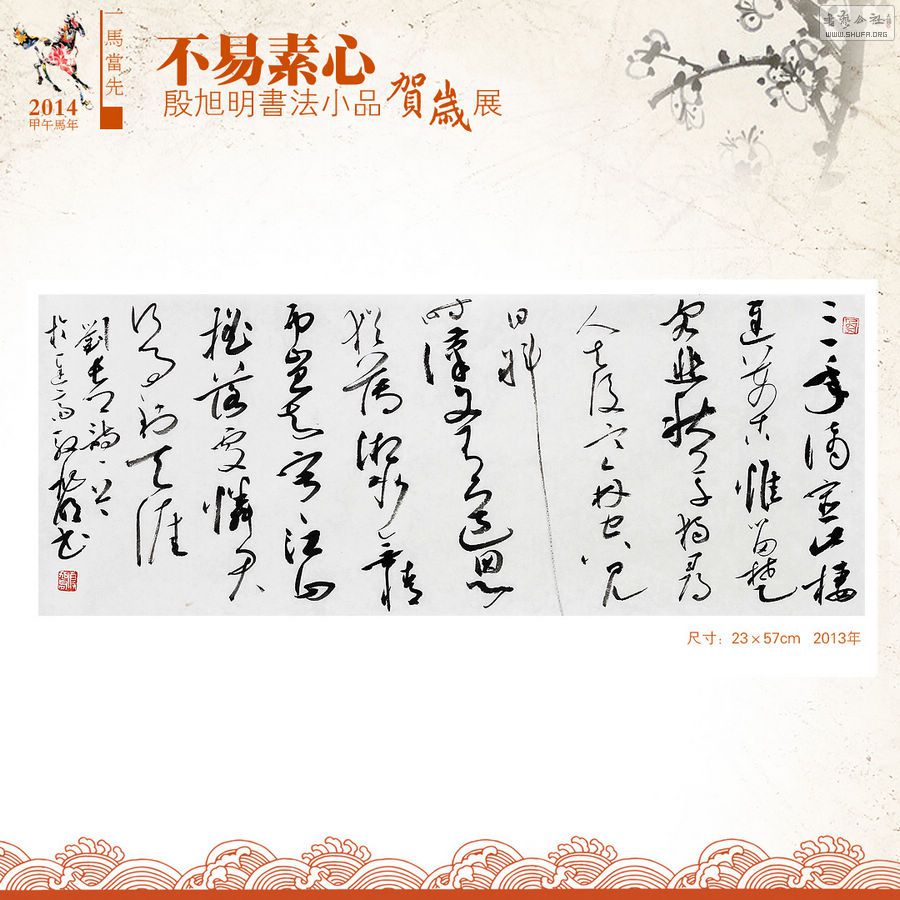 一馬當先
2014
甲午馬年
不易素心
殷旭明書法小品賀歲展
書法公社
WWW.SHUFA.ORG
三年謫宦此棲
遲萬古惟留楚
客悲秋草獨尋
人去後寒林空見
日斜
時漢文有道恩
猶薄湘水無情
弔豈知寂江山
搖落處憐君
何事到天涯
劉長卿詩一首
殷旭明书
尺寸：23×57cm 2013年